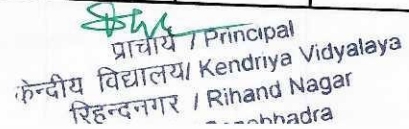 प्राचार्य / Principal
केन्द्रीय विद्यालय/ Kendriya Vidyalaya
रिहन्दनगर / Rihand Nagar